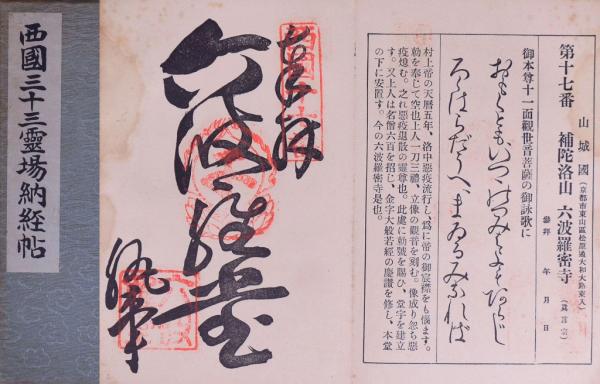 山城國(京都市東山區松原通大和大路東入)
第十七番 補陀洛山 六波羅密寺(眞言宗)
參拜 年 月 日
御本尊十一面觀世音菩薩の御詠歌に
おもくともいつゝのつみはよもあらじ
ろくはらだうへまゐるみなれば
村上帝の天暦五年、洛中惡疫流行し、爲に帝の御宸襟をも惱ます。
勅を奉じて空也上人一刀三禮、立像の觀音を刻む。像成り忽ち惡
疫熄む。之れ惡疫退散の靈尊也。此處に勅號を賜ひ、堂宇を建立
す。又上人は名僧六百を招じ、金字大般若經の慶讃を修し、本堂
の下に安置す。今の六波羅密寺是也。
奉拜
六波羅堂
執事
西國三十三靈場納經帖